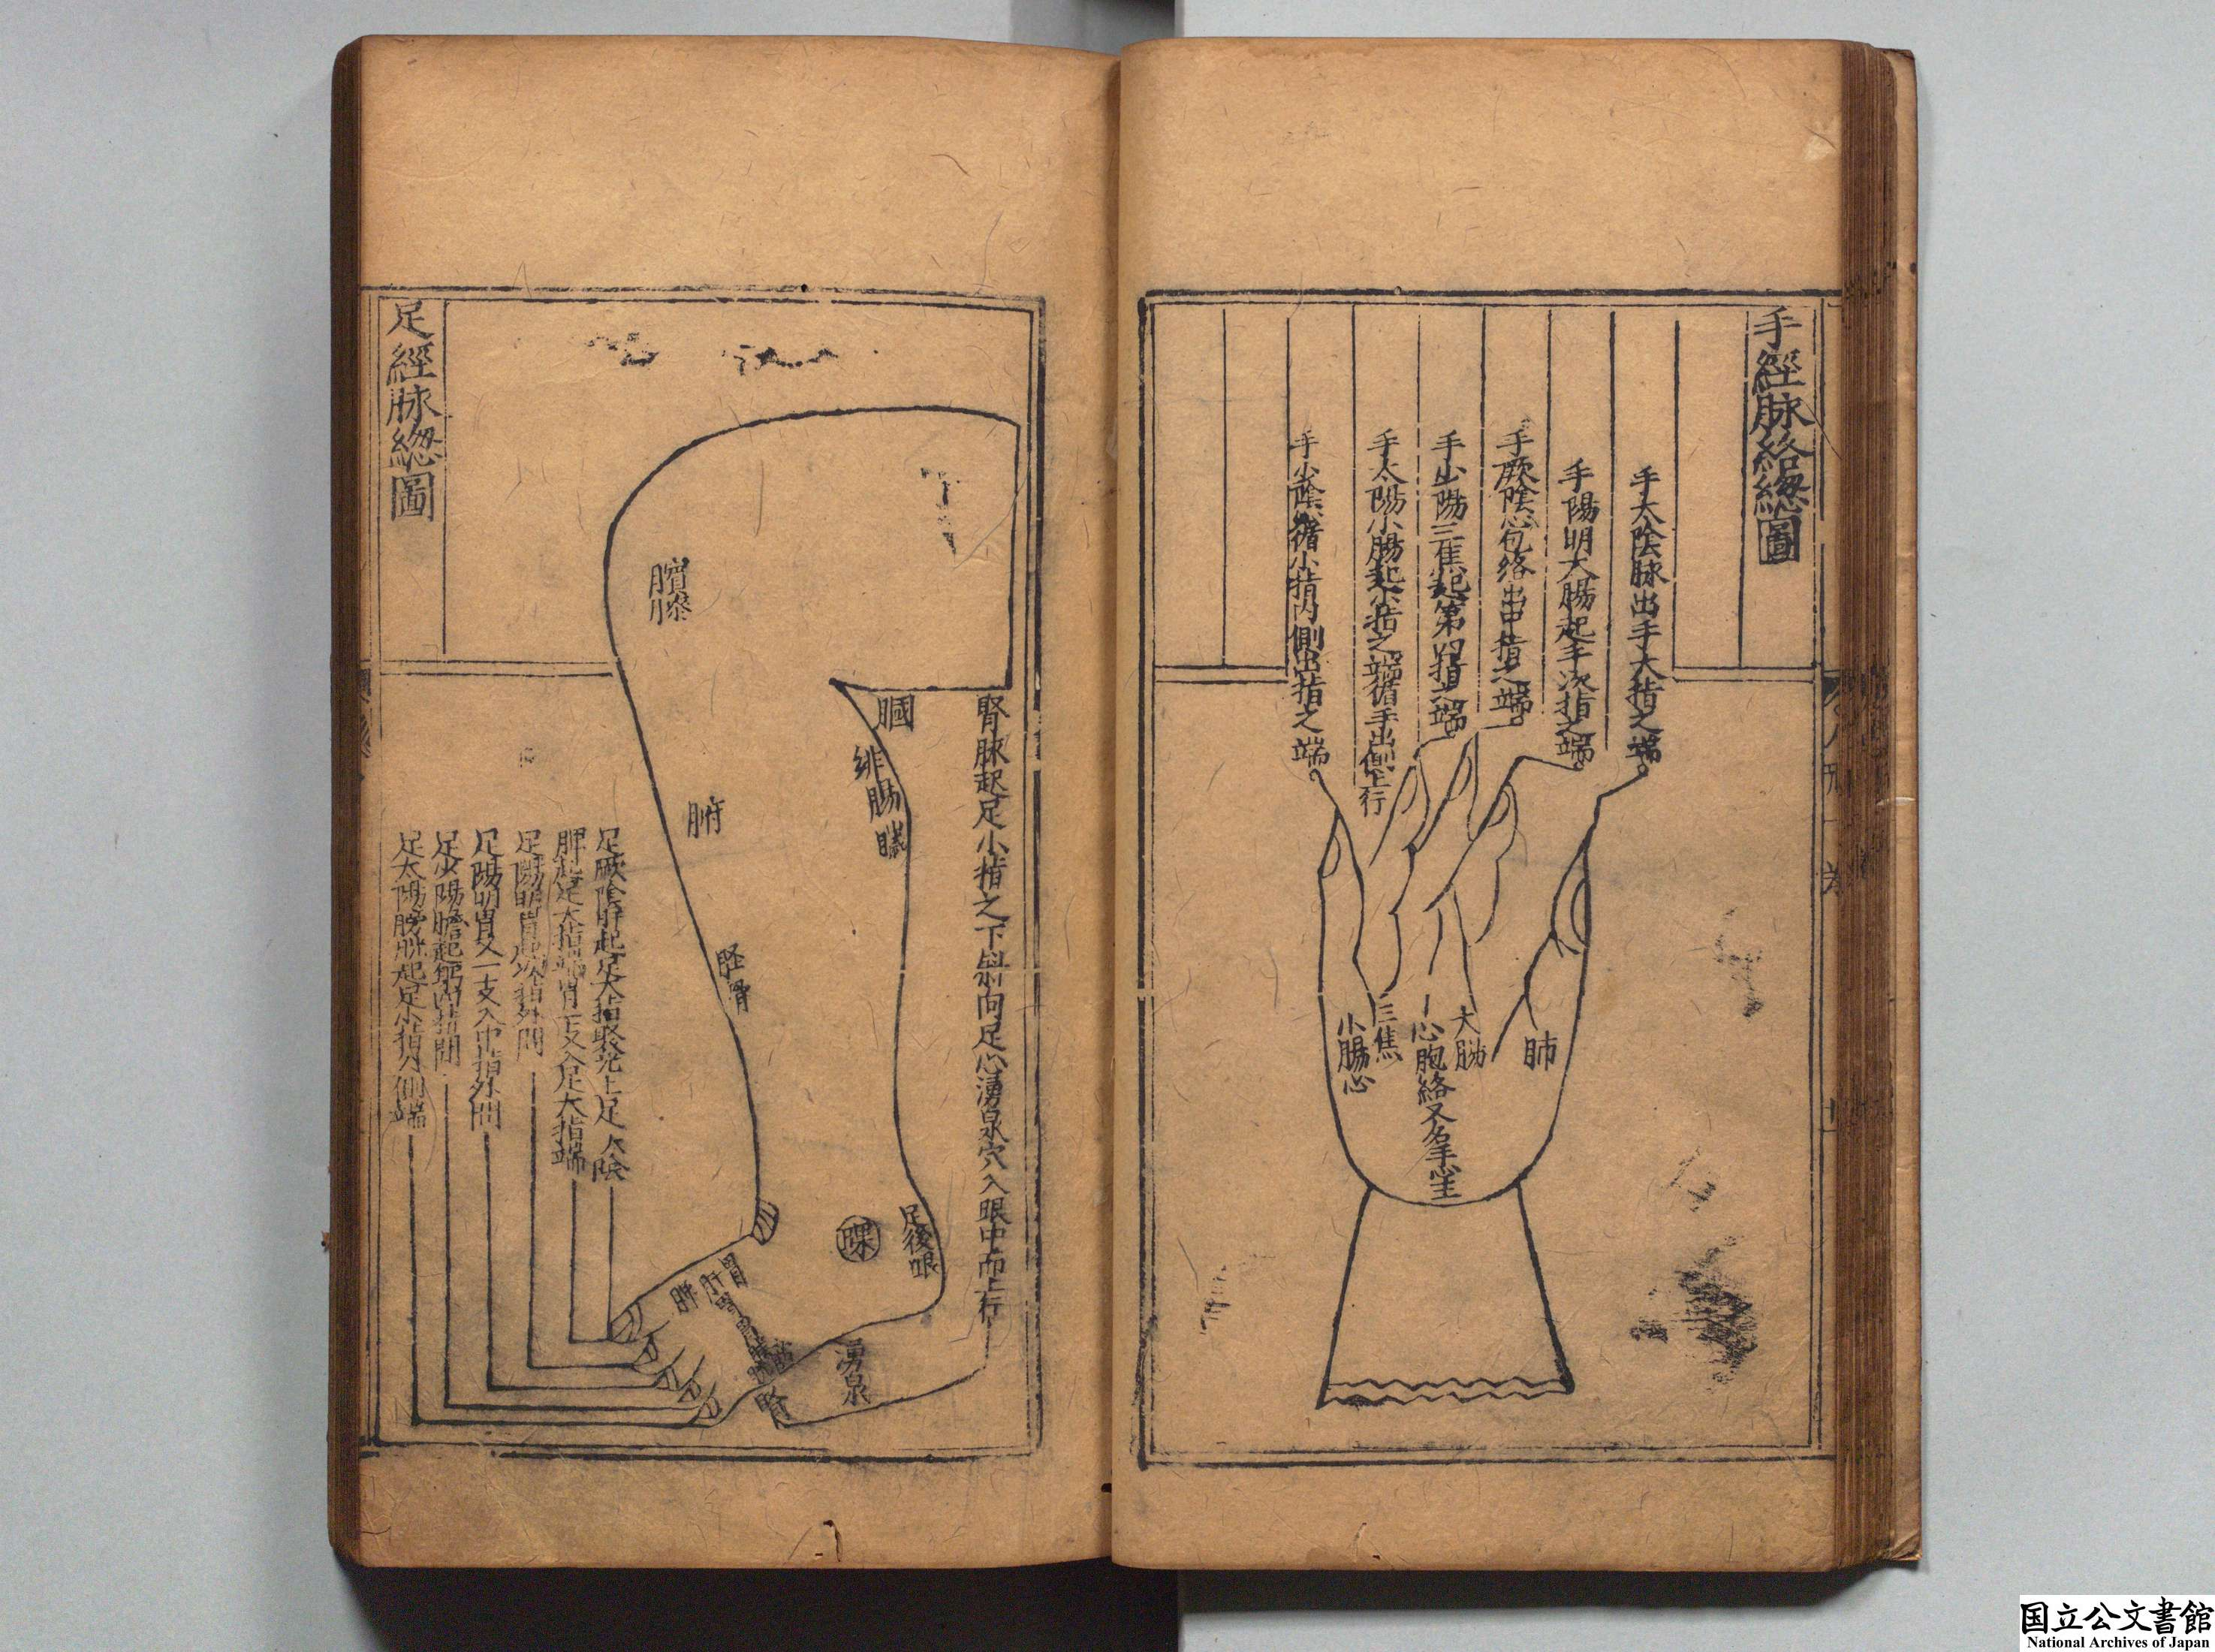 手經脉絡緫圖
手太陰脉出手大指之端
手陽明大腸起手次指之端
手厥陰心包絡出中指之端
手少陽三焦起第四指之端
手太陽小腸起小指之端循手出側上行
手少陰心循小指內側出指之端
肺
大腸
心胞絡又名手心主
三焦
小腸心
腎脉起足小指之下斜向足心湧泉穴入眼中而上行
膕
腨膝
腑
脛骨
足後眼
湧泉
腎
胃
肝
脾
足厥陰肝起足大指聚毛上足太陰
脾起足大指端胃一支入足大指端
足陽明胃起次指外間
足陽明胃又一支入中指外間
足少陽膽起第四指間
足太陽膀胱起足小指外側端
足經脉緫圖
国立公文書館
National Archives of Japan